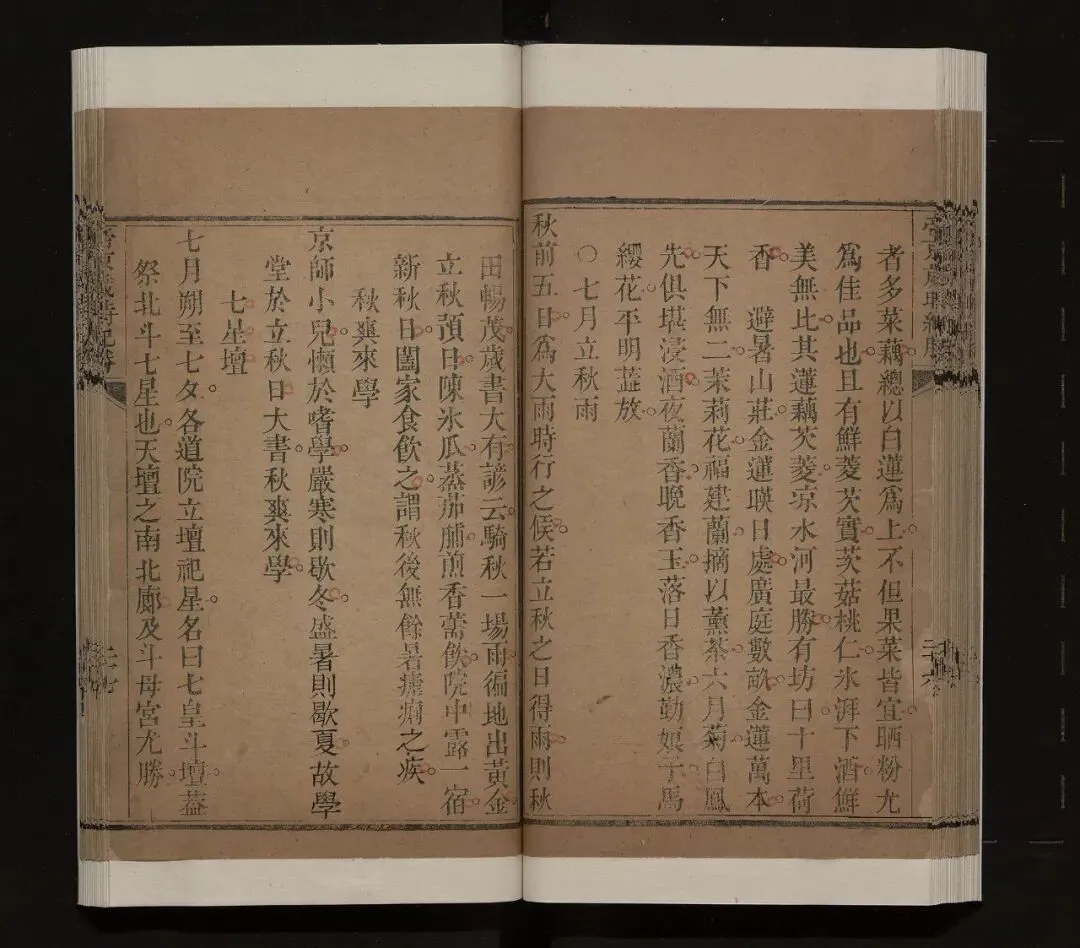 者多菜藕總以白蓮爲上不但果菜皆宜晒粉尤
爲佳品也且有鮮菱芡實茨菇桃仁氷湃下酒鮮
美無比其蓮藕芡菱凉水河最勝有坊曰十里荷
香　避暑山莊金蓮暎日處廣庭數畝金蓮萬本
天下無二茉莉花福建蘭摘以薰茶六月菊白鳳
先俱堪浸酒夜蘭香晚香玉落日香濃勤娘子馬
纓花平明蕋放
○七月立秋雨
秋前五日爲大雨時行之候若立秋之日得雨則秋
田暢茂歲書大有諺云騎秋一場雨徧地出黃金
立秋預日陳氷瓜蒸茄脯煎香薷飲院中露一宿
新秋日闔家食飲之謂秋後無餘暑瘧痢之疾
秋爽來學
京師小兒懶於嗜學嚴寒則歇冬盛暑則歇夏故學
堂於立秋日大書秋爽來學
七星壇
七月朔至七夕各道院立壇祀星名曰七皇斗壇葢
祭北斗七星也天壇之南北廊及斗母宮尤勝